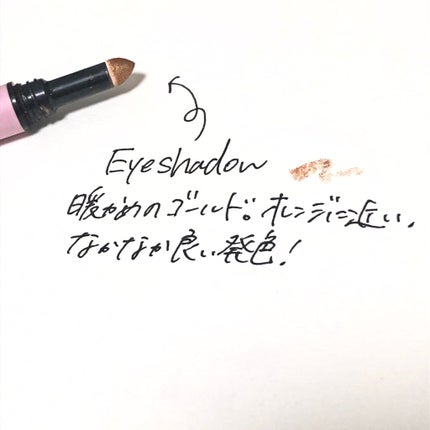 Eyeshadow
暖かめのゴールド。オレンジに近い。
なかなか良い発色!